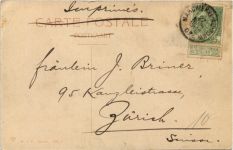 Imprimés.
CARTE POSTALE
POSTKAART
Fräulein J. Briner
95 Kanzleistrasse,
Zürich.
10
Suisse.